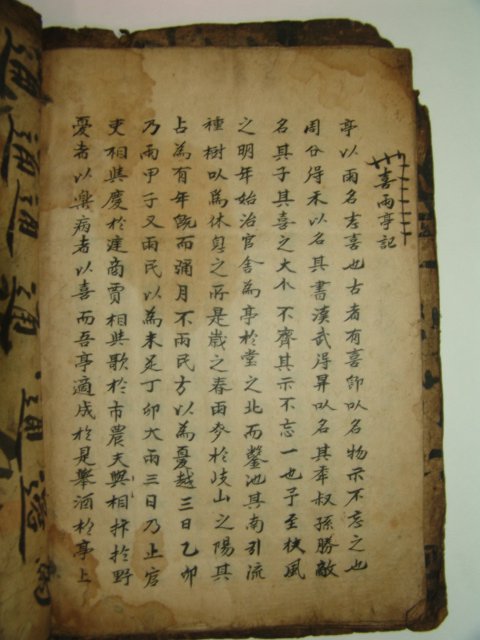 喜雨亭記
亭以雨名志喜也古者有喜即以名物示不忘之也
周公得禾以名其書漢武得昇以名其年叔孫勝敵
名其子其喜之大小不齊其示不忘一也予至扶風
之明年始治官舍為亭於堂之北而鑿池其南引流
種樹以為休息之所是歲之春雨麥於岐山之陽其
占為有年既而彌月不雨民方以為憂越三日乙卯
乃雨甲子又雨民以為未足丁卯大雨三日乃止官
吏相與慶於庭商賈相與歌於市農夫與相抃於野
憂者以樂病者以喜而吾亭適成於是舉酒於亭上